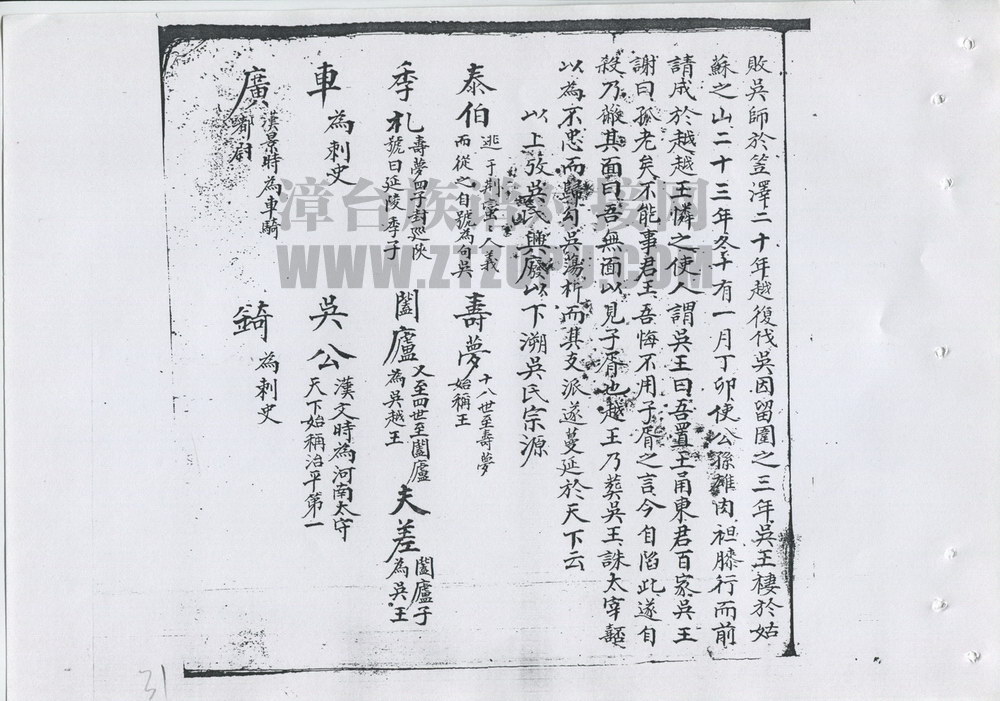 敗吳師於笠澤二十年越復伐吳因留圍之三年吳王棲於姑
蘇之山二十三年冬十有一月丁卯使公孫雄肉袒膝行而前
請成於越越王憐之使人謂吳王曰吾置王甬東君百家吳王
謝曰孤老矣不能事君王吾悔不用子胥之言今自陷此遂自
殺乃蔽其面曰吾無面以見子胥也越王乃葬吳王誅太宰嚭
以為不忠而歸勾吳蕩析而其支派遂蔓延於天下云
以上攷吳氏興廢以下溯吳氏宗源
泰伯 逃于荆蠻人義而從之自號為句吳
壽夢 十八世至壽夢始稱王
季札 壽夢四子封延陝號曰延陵季子
闔廬 又至四世至闔廬為吳越王
夫差 闔廬子為吳王
車 為刺史
吳公 漢文時為河南太守天下始稱治平第一
廣 漢景時為車騎都尉
錡 為刺史
漳台族譜对接网
WWW.ZTZUPU.COM
31